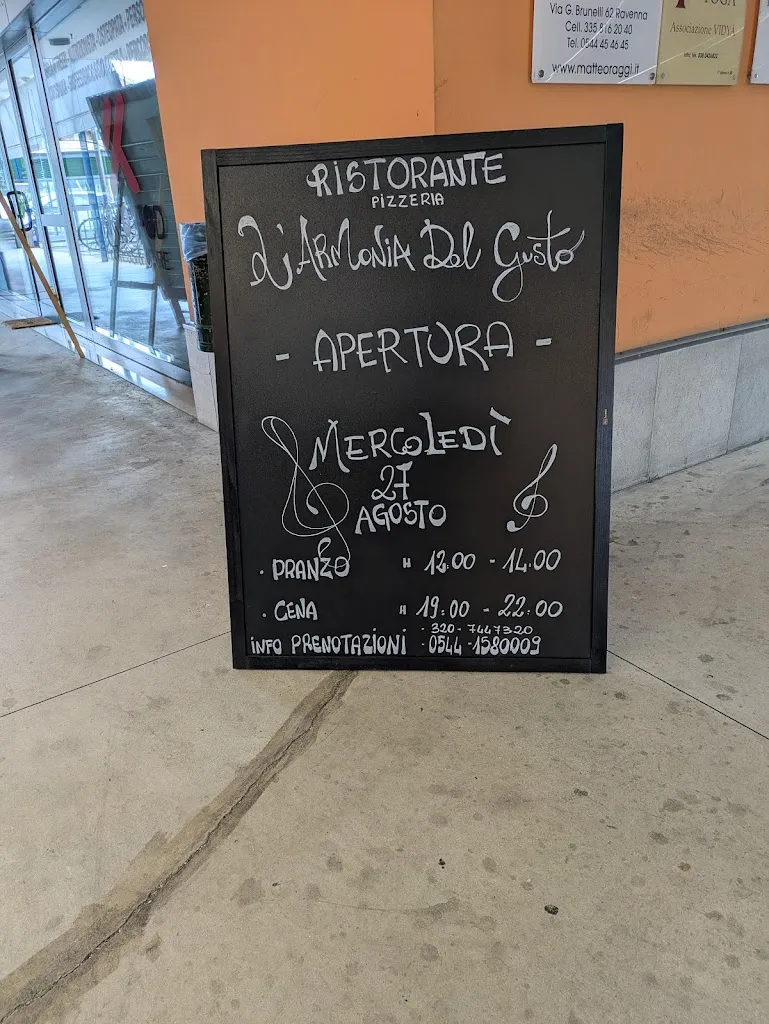 Via G. Brunelli 62 Ravenna
Cell. 335 816 20 40
Tel. 0544 45 46 45
www.matteoraggi.it
YOGA
Associazione VIDYA
RISTORANTE
PIZZERIA
L'ARMONIA DEL GUSTO
- APERTURA -
MERCOLEDÌ
27
AGOSTO
· PRANZO H 12:00 - 14:00
· CENA H 19:00 - 22:00
- 320 - 7447320
INFO PRENOTAZIONI - 0544 - 1580009